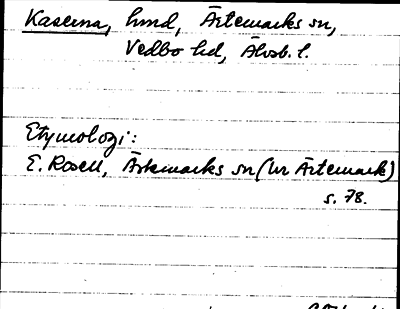 Kaserna, hmd, Ärtemarks sn,
Vedbo hd, Älvsb. l.
Etymologi:
E. Rosell, Ärtemarks sn (ur Ärtemark)
s. 78.